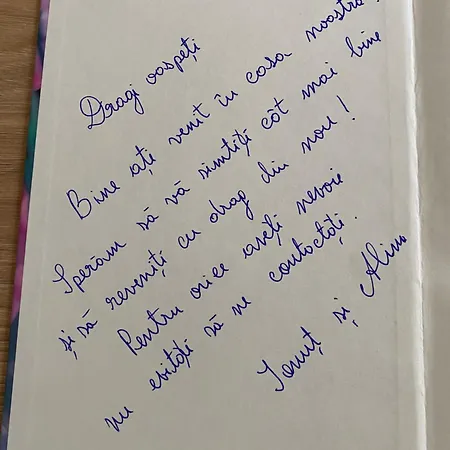 Dragi oaspeți
Bine ați venit în casa noastră!
Sperăm să vă simțiți cât mai bine
și să reveniți cu drag din nou!
Pentru orice aveți nevoie
nu ezitați să ne contactați.
Ionuț și Alina